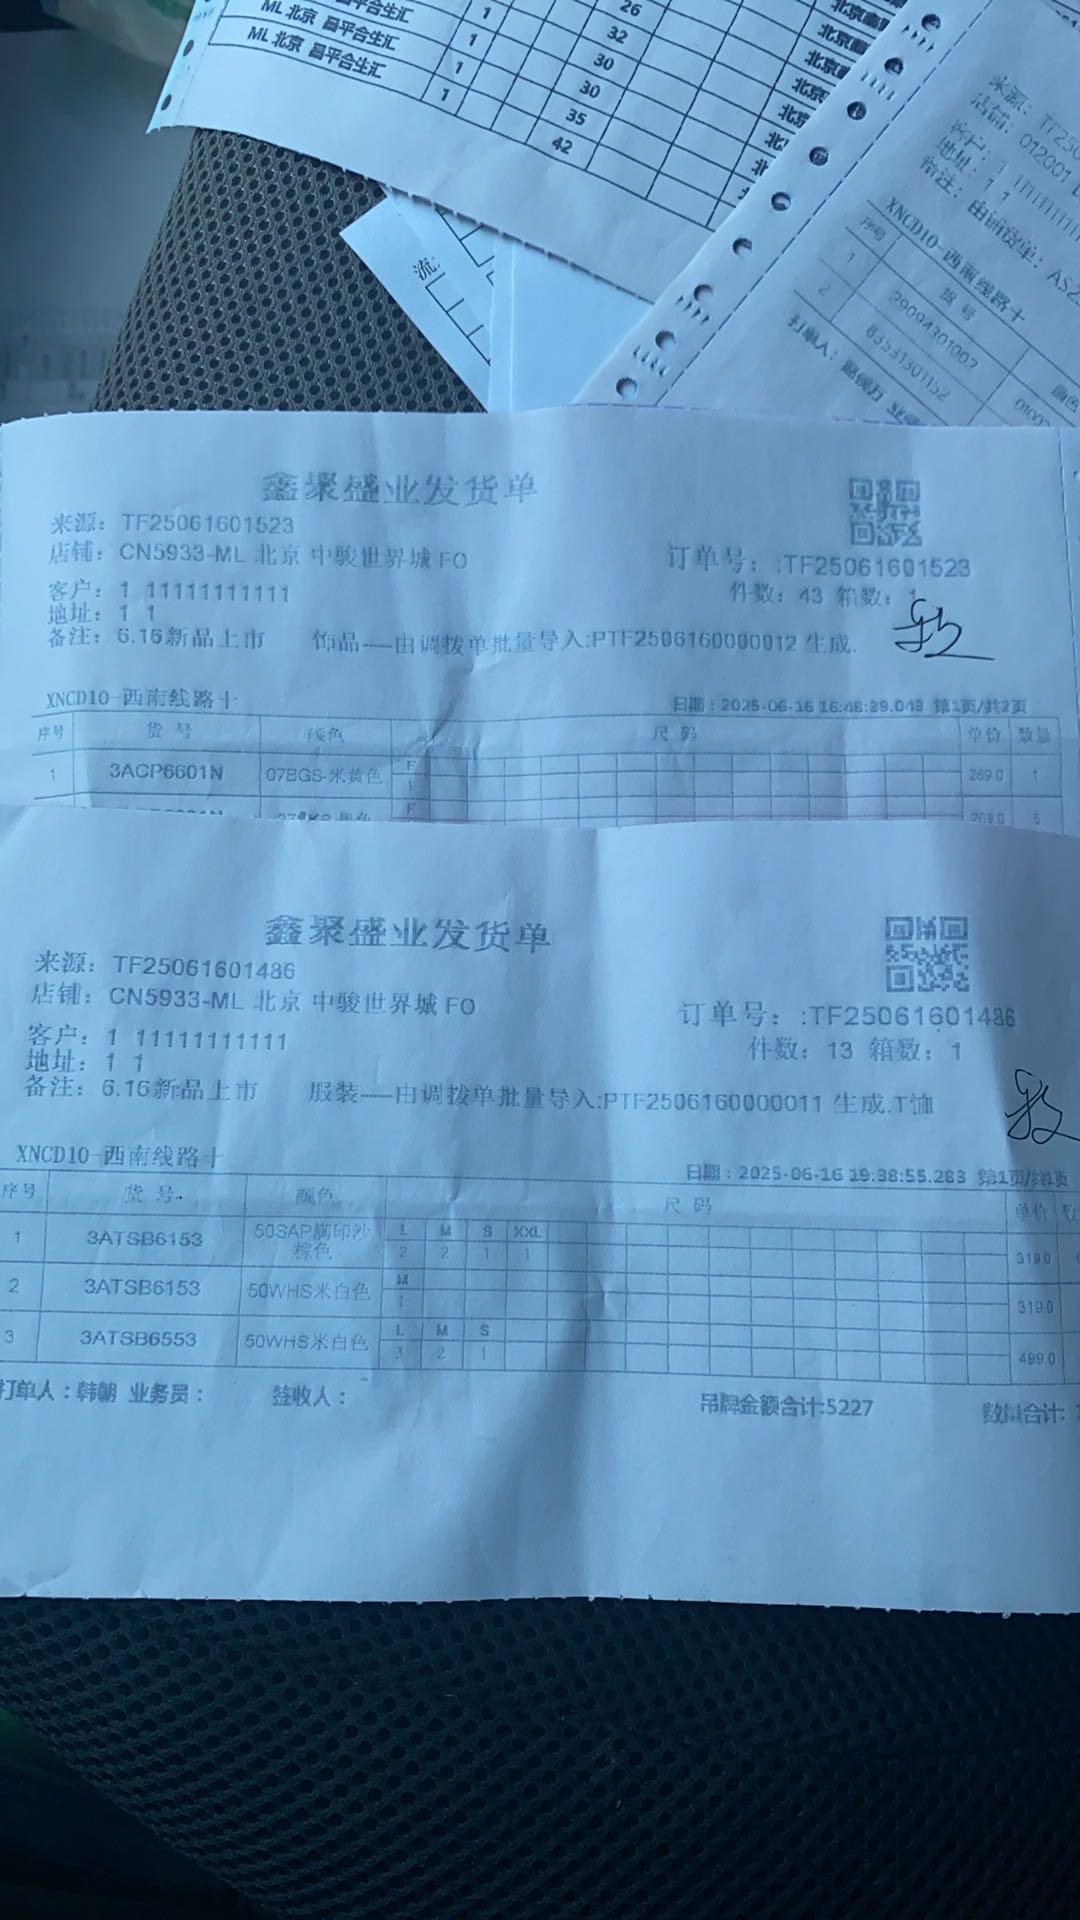 26
ML 北京 昌平合生汇 1 32
ML 北京 昌平合生汇 1 30
1 30
1 35
42
流:
来源: TF250
店铺: 012001
客户: 1 11111111
地址: 1 1
备注: 由铺货单: AS2
XNCD10-西南线路十
序号 货 号 颜色
1 29094301002
2 83531301152
打单人:
鑫聚盛业发货单
来源: TF25061601523
店铺: CN5933-ML 北京 中骏世界城 FO
订单号: :TF25061601523
客户: 1 11111111111
件数: 43 箱数: 1
地址: 1 1
备注: 6.16新品上市 饰品----由调拨单批量导入:PTF2506160000012 生成.
XNCD10-西南线路十
日期:2025-06-16 16:48:29.043 第1页/共2页
序号 货 号 颜色 尺 码 单价 数量
1 3ACP6601N 07BGS-米黄色 F 269.0 1
1
F 269.0 5
鑫聚盛业发货单
来源: TF25061601486
店铺: CN5933-ML 北京 中骏世界城 FO
订单号: :TF25061601486
客户: 1 11111111111
件数: 13 箱数: 1
地址: 1 1
备注: 6.16新品上市 服装----由调拨单批量导入:PTF2506160000011 生成.T恤
XNCD10-西南线路十
日期:2025-06-16 19:38:55.283 第1页/共1页
序号 货 号. 颜色 尺 码 单价 数
1 3ATSB6153 50SAP满印沙棕色 L M S XXL 319.0
2 2 1 1
2 3ATSB6153 50WHS米白色 M 319.0
1
3 3ATSB6553 50WHS米白色 L M S 499.0
3 2 1
打单人:韩朝 业务员: 签收人: 吊牌金额合计:5227 数量合计: